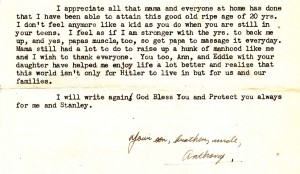 I appreciate all that mama and everyone at home has done
that I have been able to attain this good old ripe age of 20 yrs.
I don't feel anymore like a kid as you do when you are still in
your teens. I feel as if I am stronger with the yrs. to back me
up, and yes, papas muscle, too, so get papa to massage it everyday
Mama still had a lot to do to raise up a hunk of manhood like me
and I wish to thank everyone. You too, Ann, and Eddie with your
daughter have helped me enjoy life a lot better and realize that
this world isn't only for Hitler to live in but for us and our
families.
I will write again/ God Bless You and Protect you always
for me and Stanley.
Your son, brother, uncle,
Anthony.